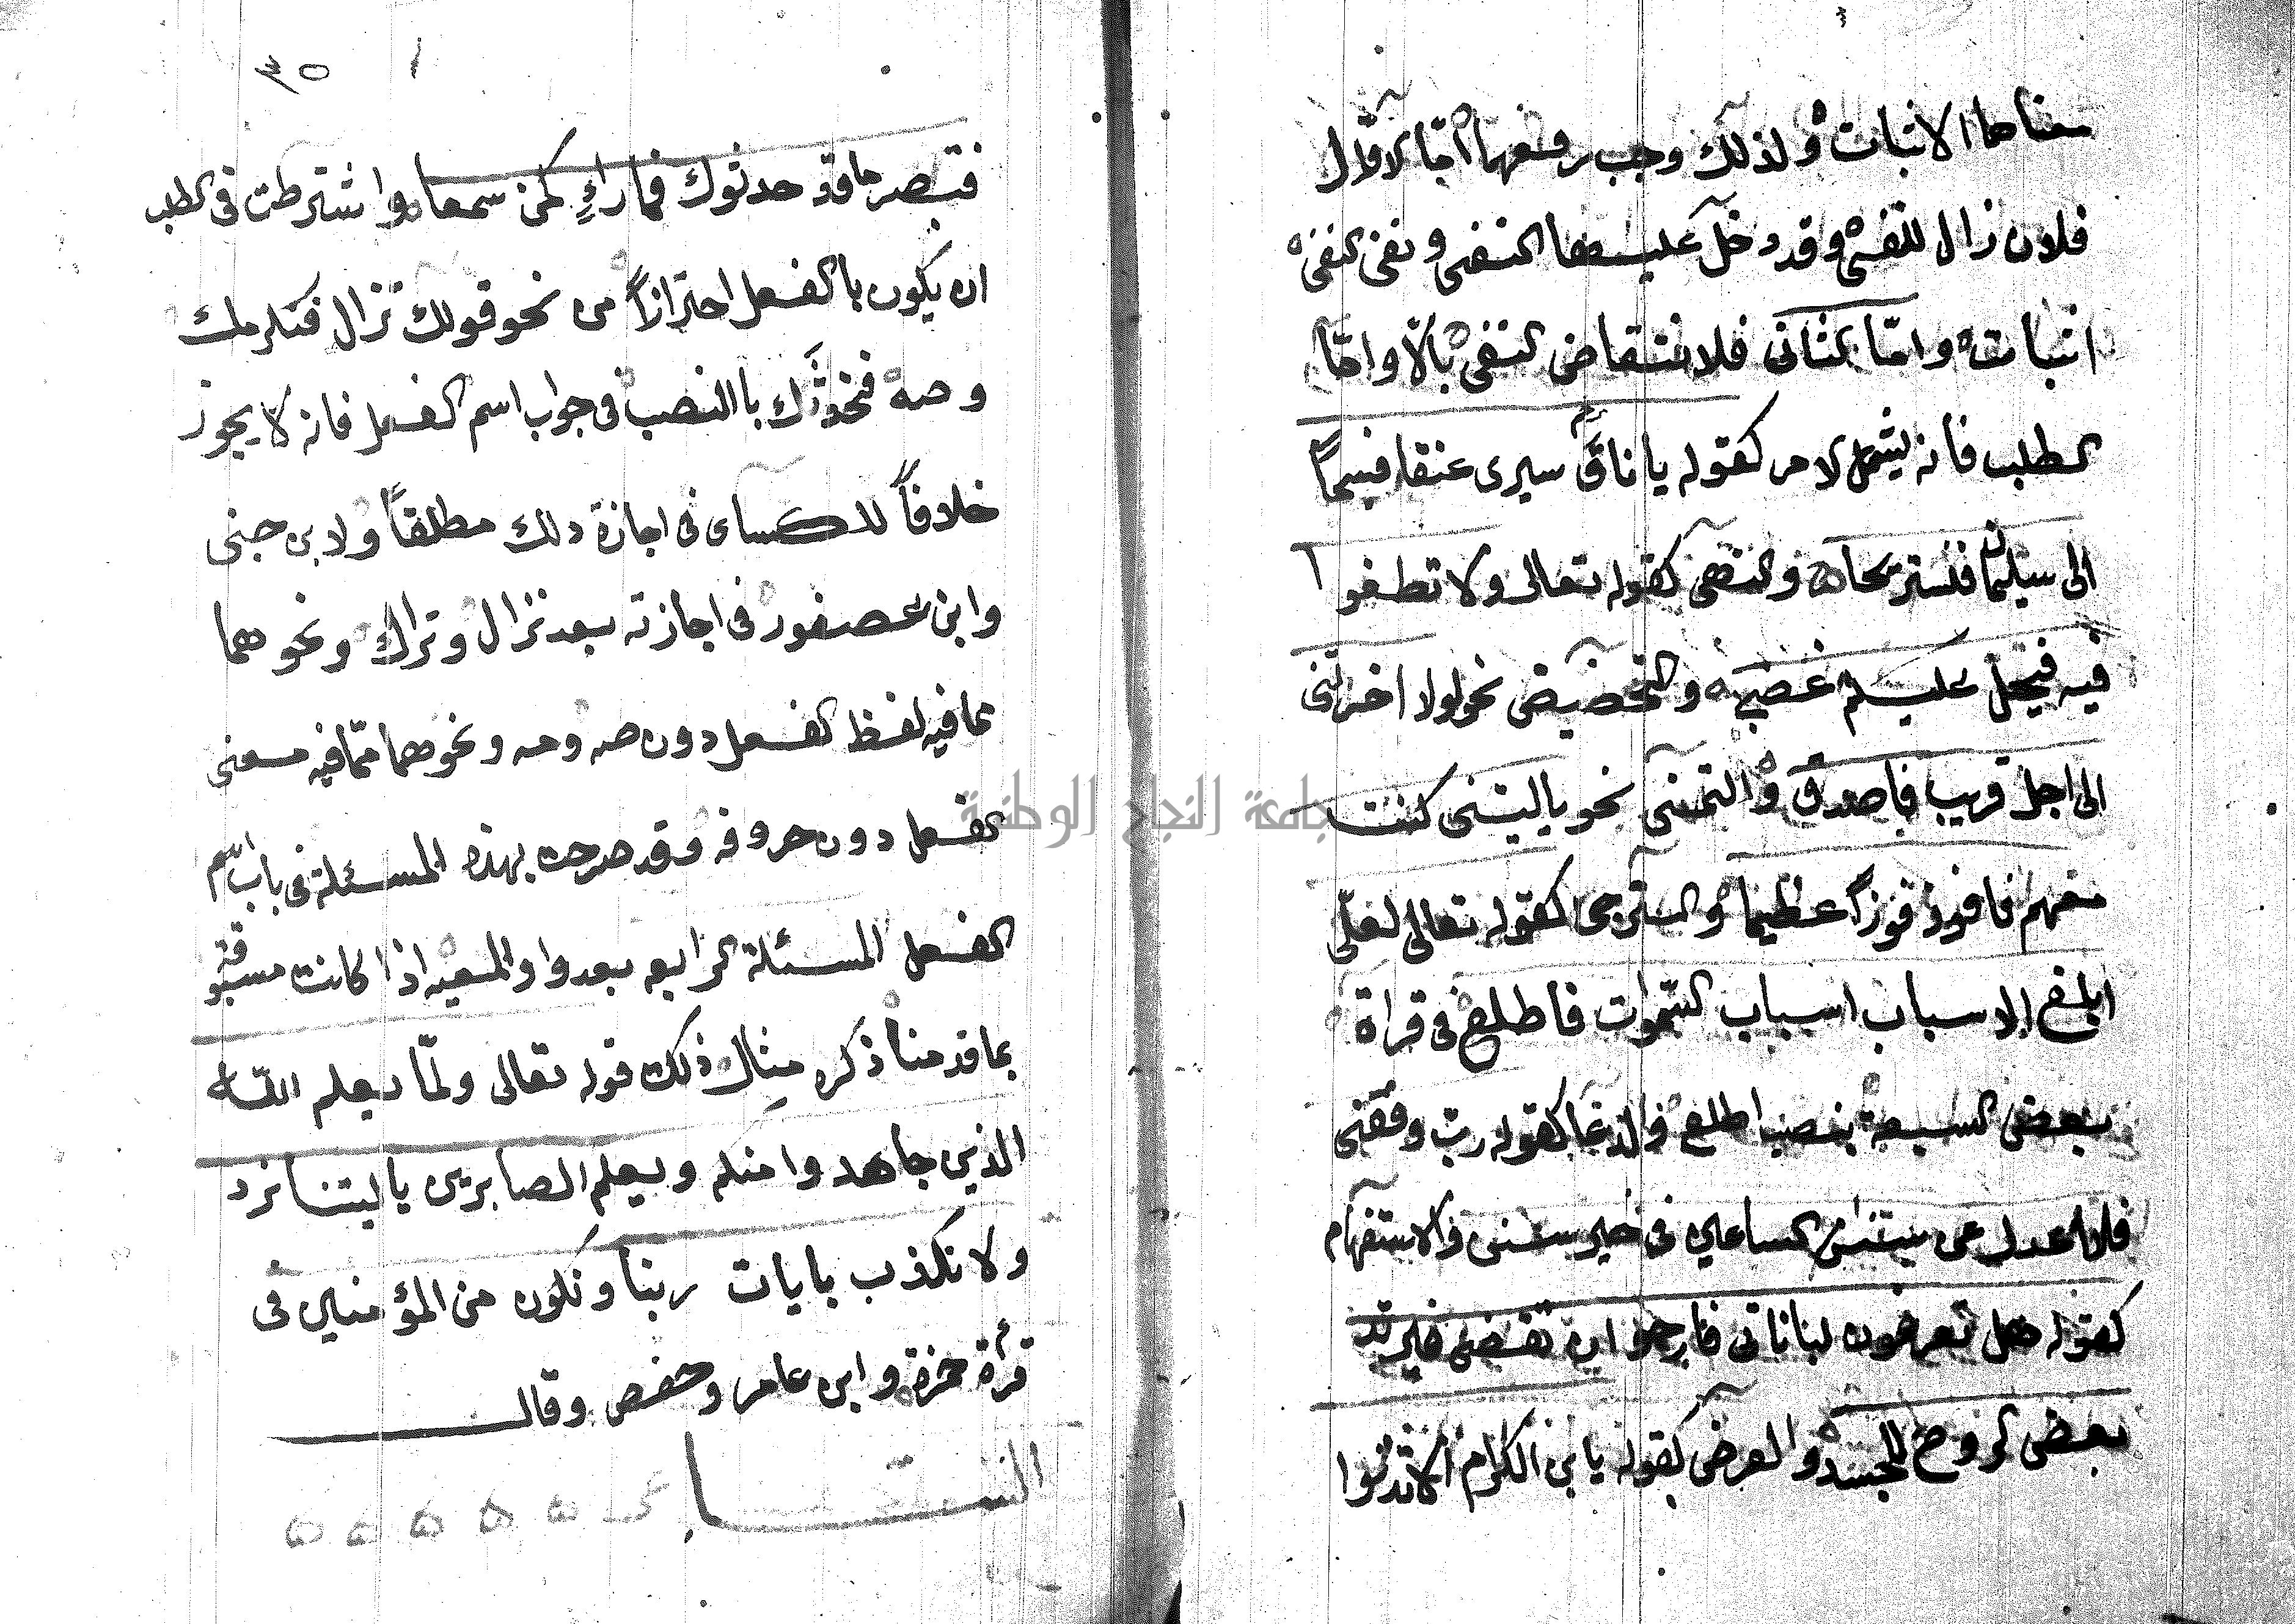 معناهما الاثبات ولذلك وجب رفعهما امّا الاوّل
فلان زال للنفى وقد دخل عليها النفى ونفى النفى
اثبات وامّا الثانى فلانتقاض النفى بالّا وامّا
الطلب فانه يشمل الامر كقوله يا ناق سيرى عنقا فسيحاً
الى سليمان فنستريحا والنهى كقوله تعالى ولا تطغوا
فيه فيحل عليكم غضبى والتحضيض نحو لولا اخرتنى
الى اجل قريب فاصدق والتمنى نحو ياليتنى كنت
معهم فافوز فوزاً عظيماً والترجى كقوله تعالى لعلّى
ابلغ الاسباب اسباب السموات فاطلع فى قراة
بعض السبعة بنصب اطلع والدعا كقوله ربّ وفقنى
فلا اعدل عن سنن الساعين فى خير سنن والاستفهام
كقوله هل تعرفون لباناتى فارجو ان تقضى فيرتد
بعض الروح للجسد والعرض كقوله يا بن الكرام الا تدنوا
٣٥
فتبصر ما قد حدثوك فما راءٍ كمن سمعا واشترطت فى الطلب
ان يكون بالفعل احترازاً من نحو قولك نزال فنكرمك
وصه فنحدّثك بالنصب فى جواب اسم الفعل فانه لا يجوز
خلافاً للكساى فى اجازة ذلك مطلقاً ولابن جنى
وابن عصفور فى اجازته بعد نزال وتراك ونحوهما
مما فيه لفظ الفعل دون صه ومه ونحوهما ممّا فيه معنى
الفعل دون حروفه وقد صرحت بهذه المسئلة فى باب اسم
الفعل المسئلة الرابعه بعد واو المعيه اذا كانت مسبوقة
بما قدمنا ذكره مثال ذلك قوله تعالى ولمّا يعلم الله
الذين جاهدوا منكم ويعلم الصابرين ياليتنا نرد
ولا نكذب بايات ربنا ونكون من المؤمنين فى
قرأة حمزة وابن عامر وحفص وقال
الشا
جامعة النجاح الوطنية